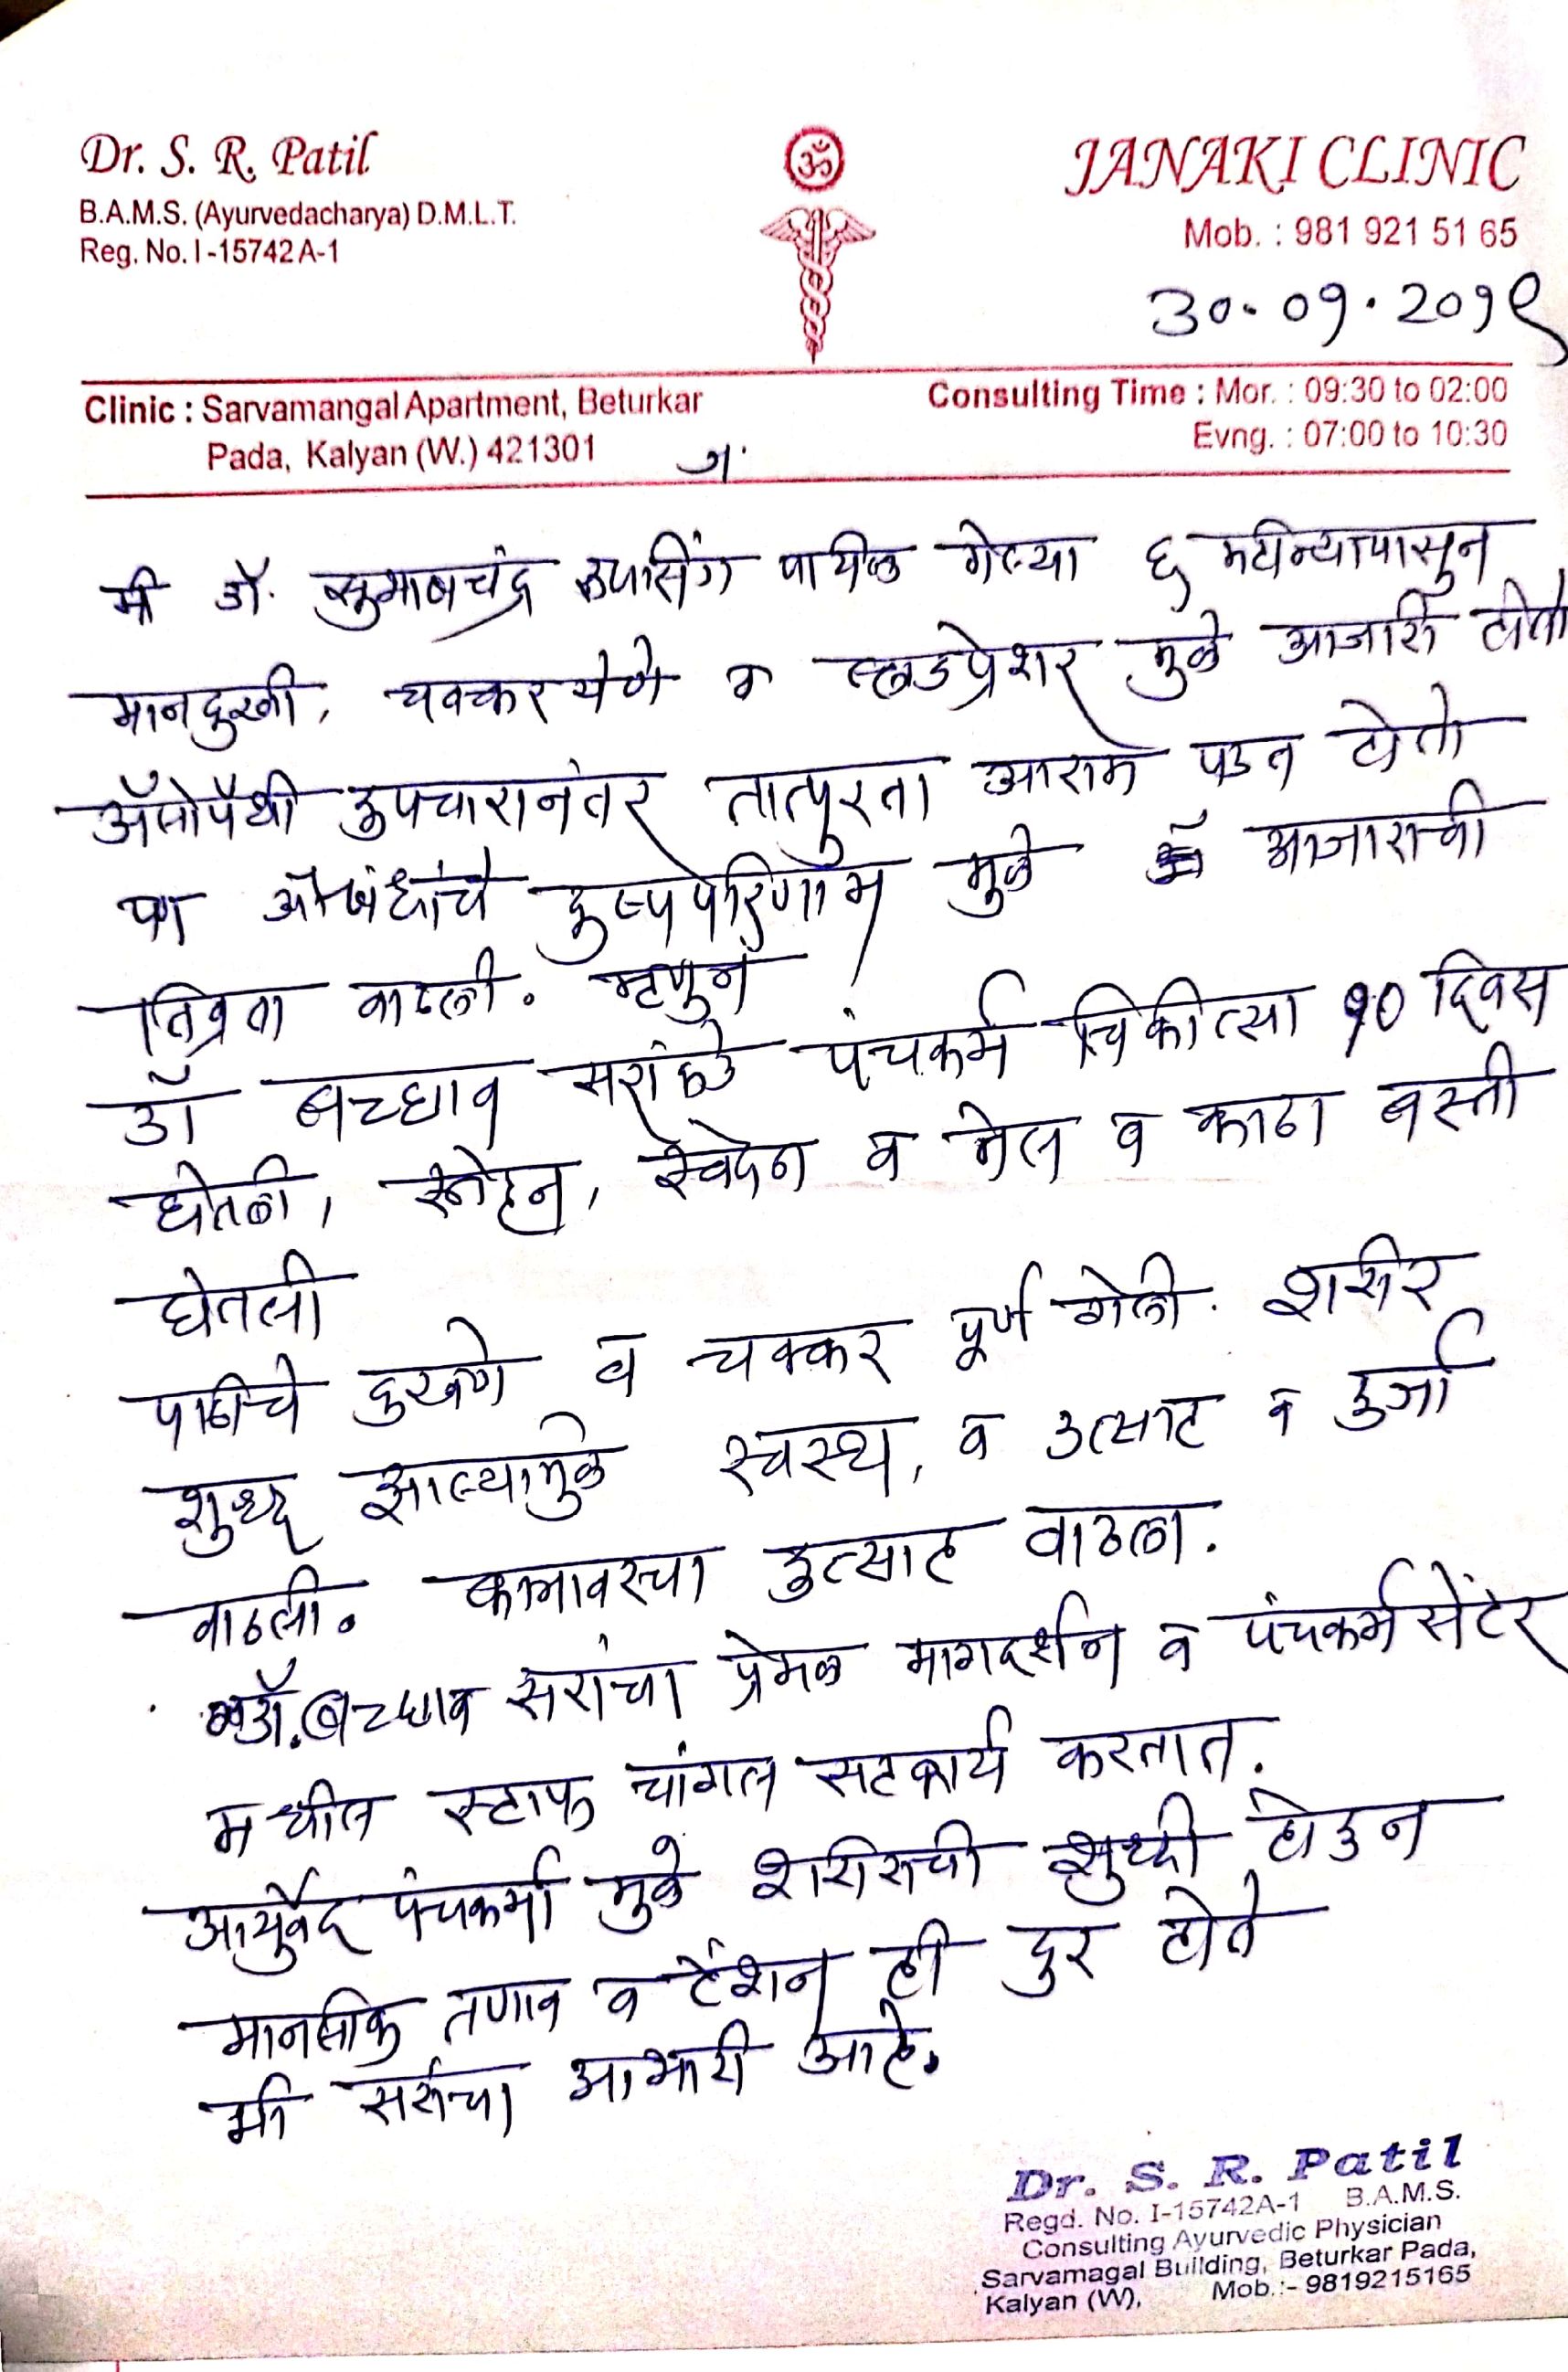 Dr. S. R. Patil
B.A.M.S. (Ayurvedacharya) D.M.L.T.
Reg. No. I-15742 A-1
ॐ
JANAKI CLINIC
Mob. : 981 921 51 65
३०.०१.२०१९
Clinic : Sarvamangal Apartment, Beturkar
Pada, Kalyan (W.) 421301
Consulting Time : Mor. : 09:30 to 02:00
Evng. : 07:00 to 10:30
मी डॉ. सुभाषचंद्र रुपसिंग पाटील गेल्या ६ महीन्यापासुन
मानदुखी, चक्कर येणे व ब्लडप्रेशर मुळे आजारी होतो
अ‍ॅलोपॅथी उपचारानंतर तात्पुरता आराम पडत होतो
पण औषधांचे दुष्पपरिणाम मुळे आजाराची
तिव्रता वाढली. म्हणुन
डॉ बच्छाव सरांकडे पंचकर्म चिकीत्सा १० दिवस
घेतली, स्नेहन, स्वेदन व तेल व काढा बस्ती
घेतली
पाठीचे दुखणे व चक्कर पूर्ण गेली. शरीर
शुध्द झाल्यामुळे स्वस्थ, व उत्साह व उर्जा
वाढली. कामावरचा उत्साह वाढला.
डॉ. बच्छाव सरांचा प्रेमळ मागदर्शन व पंचकर्म सेंटर
मधील स्टाफ चांगल सहकार्य करतात.
आर्युवेद पंचकर्मा मुळे शरीराची शुध्दी होउन
मानसीक तणाव व टेंशन ही दुर होते
मी सरांचा आभारी आहे.
Dr. S. R. Patil
Regd. No. I-15742A-1 B.A.M.S.
Consulting Ayurvedic Physician
Sarvamagal Building, Beturkar Pada,
Kalyan (W), Mob.:- 9819215165